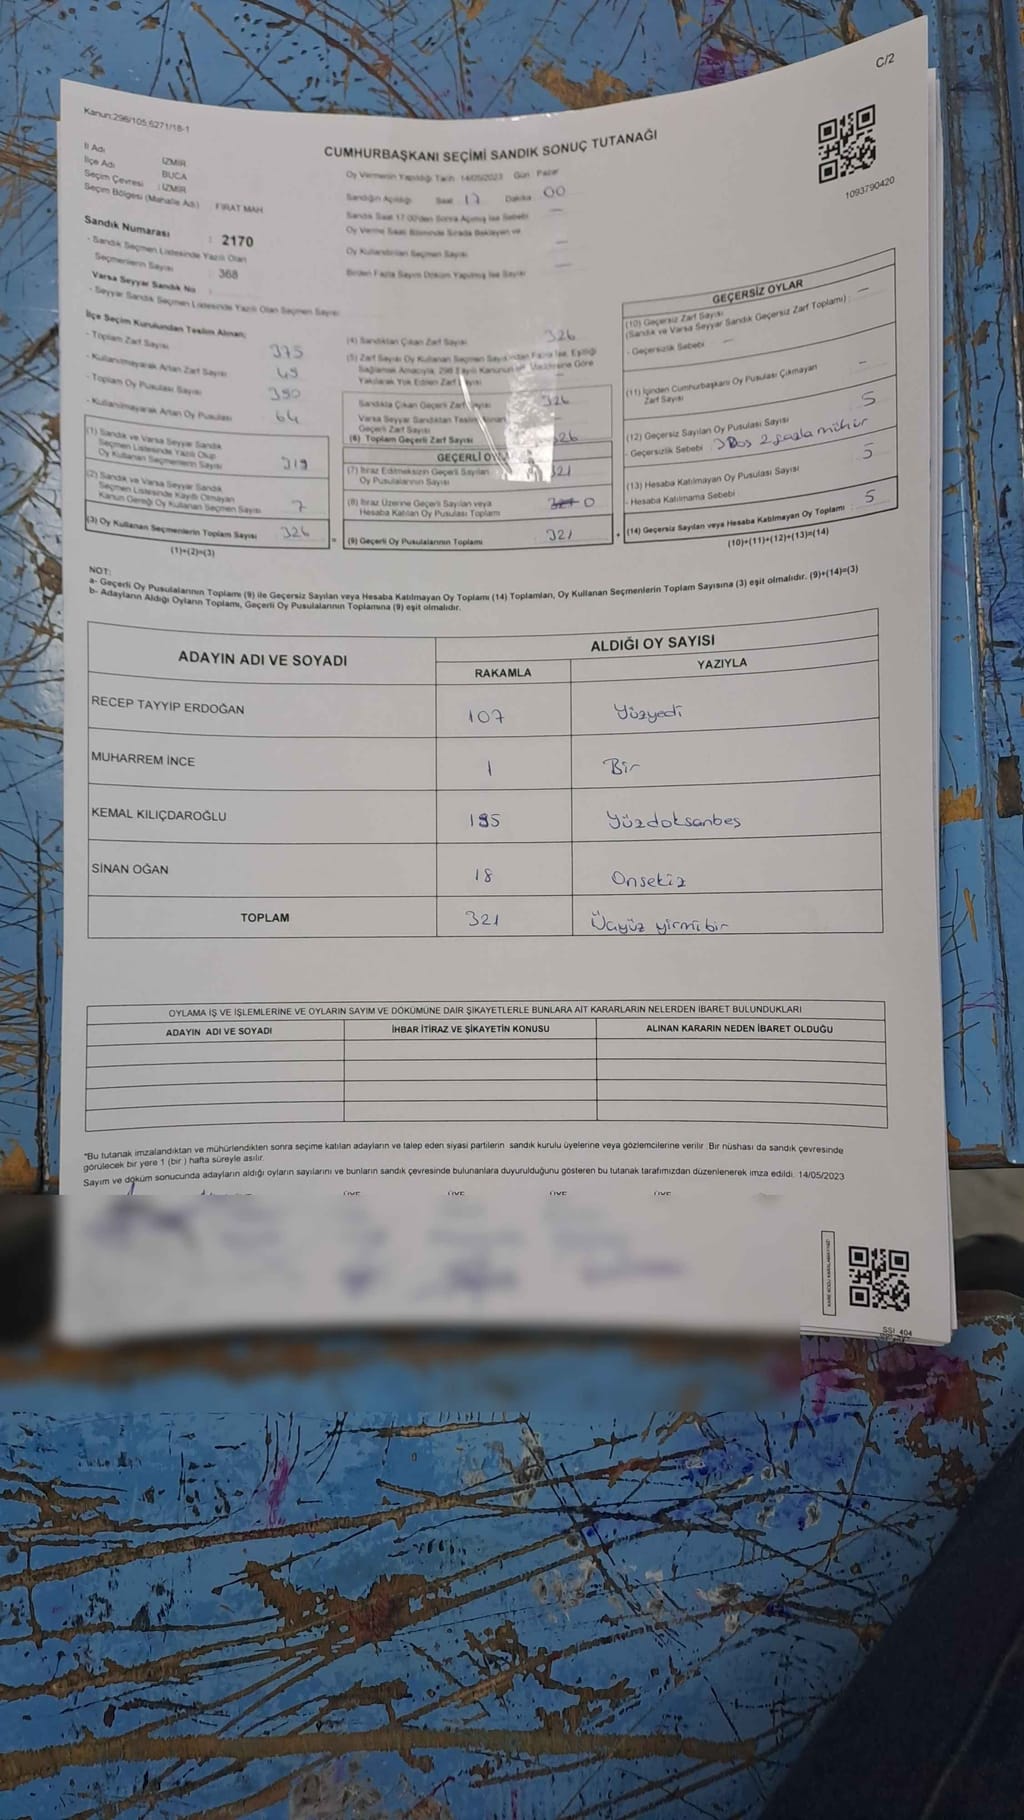 C/2
Kanun:298/105,6271/18-1
CUMHURBAŞKANI SEÇİMİ SANDIK SONUÇ TUTANAĞI
1093790420
İl Adı İZMİR
İlçe Adı BUCA
Seçim Çevresi : İZMİR
Seçim Bölgesi (Mahalle Adı) FIRAT MAH
Sandık Numarası : 2170
- Sandık Seçmen Listesinde Yazılı Olan
Seçmenlerin Sayısı 368
Varsa Seyyar Sandık No
- Seyyar Sandık Seçmen Listesinde Yazılı Olan Seçmen Sayısı
Oy Vermenin Yapıldığı Tarih 14/05/2023 Gün Pazar
Sandığın Açıldığı Saat 17 Dakika 00
Sandık Saat 17:00'den Sonra Açılmış İse Sebebi —
Oy Verme Saati Bitiminde Sırada Bekleyen ve
Oy Kullandırılan Seçmen Sayısı —
Birden Fazla Sayım Döküm Yapılmış İse Sayısı —
İlçe Seçim Kurulundan Teslim Alınan;
- Toplam Zarf Sayısı 375
- Kullanılmayarak Artan Zarf Sayısı 49
- Toplam Oy Pusulası Sayısı 390
- Kullanılmayarak Artan Oy Pusulası 64
(1) Sandık ve Varsa Seyyar Sandık
Seçmen Listesinde Yazılı Olup
Oy Kullanan Seçmenlerin Sayısı 319
(2) Sandık ve Varsa Seyyar Sandık
Seçmen Listesinde Kayıtlı Olmayan
Kanun Gereği Oy Kullanan Seçmen Sayısı 7
(3) Oy Kullanan Seçmenlerin Toplam Sayısı 326
(1)+(2)=(3)
(4) Sandıktan Çıkan Zarf Sayısı 326
(5) Zarf Sayısı Oy Kullanan Seçmen Sayısından Fazla İse, Eşitliği
Sağlamak Amacıyla, 298 Sayılı Kanunun Maddesine Göre
Yakılarak Yok Edilen Zarf Sayısı
Sandıkta Çıkan Geçerli Zarf Sayısı 326
Varsa Seyyar Sandıktan Teslim Alınan
Geçerli Zarf Sayısı
(6) Toplam Geçerli Zarf Sayısı 326
GEÇERLİ OY
(7) İtiraz Edilmeksizin Geçerli Sayılan
Oy Pusulasının Sayısı 321
(8) İtiraz Üzerine Geçerli Sayılan veya
Hesaba Katılan Oy Pusulası Toplamı 0
= (9) Geçerli Oy Pusulalarının Toplamı 321
GEÇERSİZ OYLAR
(10) Geçersiz Zarf Sayısı
(Sandık ve Varsa Seyyar Sandık Geçersiz Zarf Toplamı) : —
- Geçersizlik Sebebi —
(11) İçinden Cumhurbaşkanı Oy Pusulası Çıkmayan
Zarf Sayısı —
(12) Geçersiz Sayılan Oy Pusulası Sayısı 5
- Geçersizlik Sebebi 3 Boş 2 fazla mühür
(13) Hesaba Katılmayan Oy Pusulası Sayısı 5
- Hesaba Katılmama Sebebi
+ (14) Geçersiz Sayılan veya Hesaba Katılmayan Oy Toplamı : 5
(10)+(11)+(12)+(13)=(14)
NOT:
a- Geçerli Oy Pusulalarının Toplamı (9) ile Geçersiz Sayılan veya Hesaba Katılmayan Oy Toplamı (14) Toplamları, Oy Kullanan Seçmenlerin Toplam Sayısına (3) eşit olmalıdır. (9)+(14)=(3)
b- Adayların Aldığı Oyların Toplamı, Geçerli Oy Pusulalarının Toplamına (9) eşit olmalıdır.
ADAYIN ADI VE SOYADI ALDIĞI OY SAYISI
RAKAMLA YAZIYLA
RECEP TAYYİP ERDOĞAN 107 Yüzyedi
MUHARREM İNCE 1 Bir
KEMAL KILIÇDAROĞLU 195 Yüzdoksanbeş
SİNAN OĞAN 18 Onsekiz
TOPLAM 321 Üçyüz yirmibir
OYLAMA İŞ VE İŞLEMLERİNE VE OYLARIN SAYIM VE DÖKÜMÜNE DAİR ŞİKAYETLERLE BUNLARA AİT KARARLARIN NELERDEN İBARET BULUNDUKLARI
ADAYIN ADI VE SOYADI İHBAR İTİRAZ VE ŞİKAYETİN KONUSU ALINAN KARARIN NEDEN İBARET OLDUĞU
*Bu tutanak imzalandıktan ve mühürlendikten sonra seçime katılan adayların ve talep eden siyasi partilerin sandık kurulu üyelerine veya gözlemcilerine verilir. Bir nüshası da sandık çevresinde
görülecek bir yere 1 (bir) hafta süreyle asılır.
Sayım ve döküm sonucunda adayların aldığı oyların sayılarını ve bunların sandık çevresinde bulunanlara duyurulduğunu gösteren bu tutanak tarafımızdan düzenlenerek imza edildi. 14/05/2023
ÜYE ÜYE ÜYE ÜYE
SSİ 404